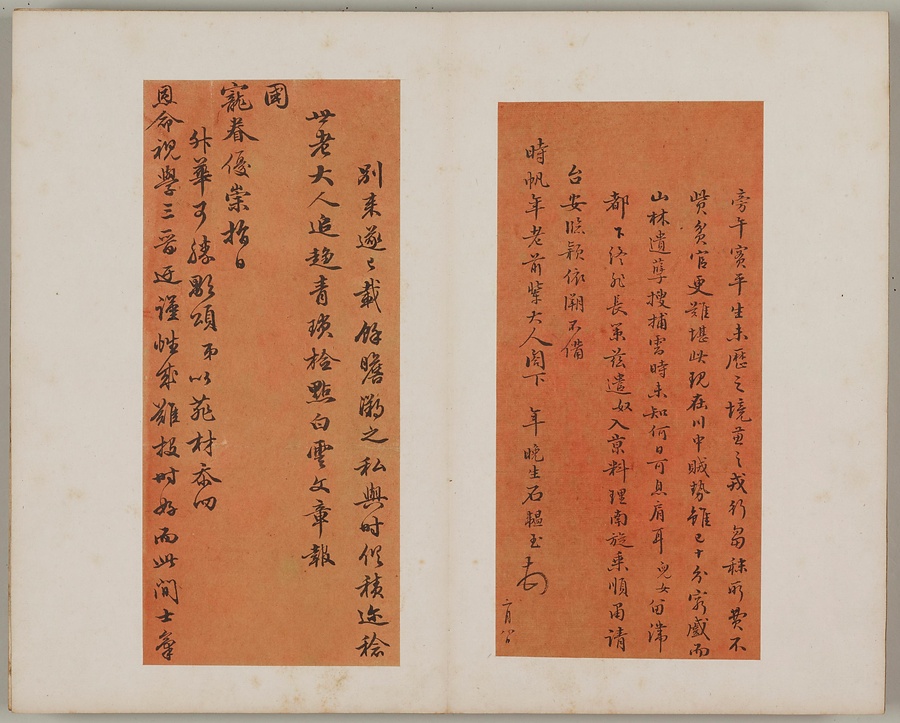 旁午實平生未歷之境兼之戎行芻秣所費不
貲貧官更難堪此現在川中賊勢雖已十分窮蹙而
山林遺孽搜捕需時未知何日可息肩耳兒女留滯
都下終非長策茲遣奴入京料理南旋乘順甬請
台安臨穎依溯不備
時帆年老前輩大人閣下 年晚生石韞玉
二月
別來遂已載餘瞻溯之私與時俱積迩稔
世老大人追趨青瑣檢點白雲文章報
國
寵眷優崇指日
升華可勝歌頌弟以菲材忝叨
恩命視學三晉迂謹性成難投時好而此間士氣